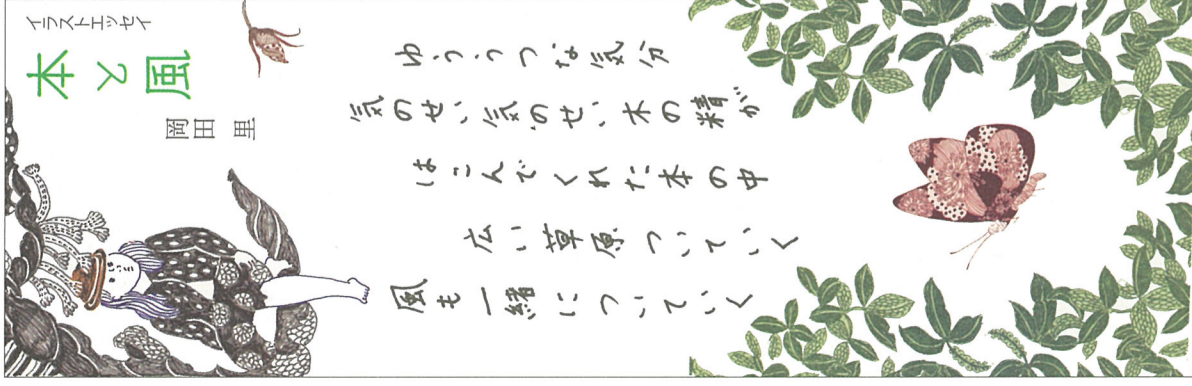 イラストエッセイ
本と風
岡田 里
ゆううつな気分
気のせい気のせい木の精が
はこんでくれた本の中
広い草原ついていく
風も一緒についていく